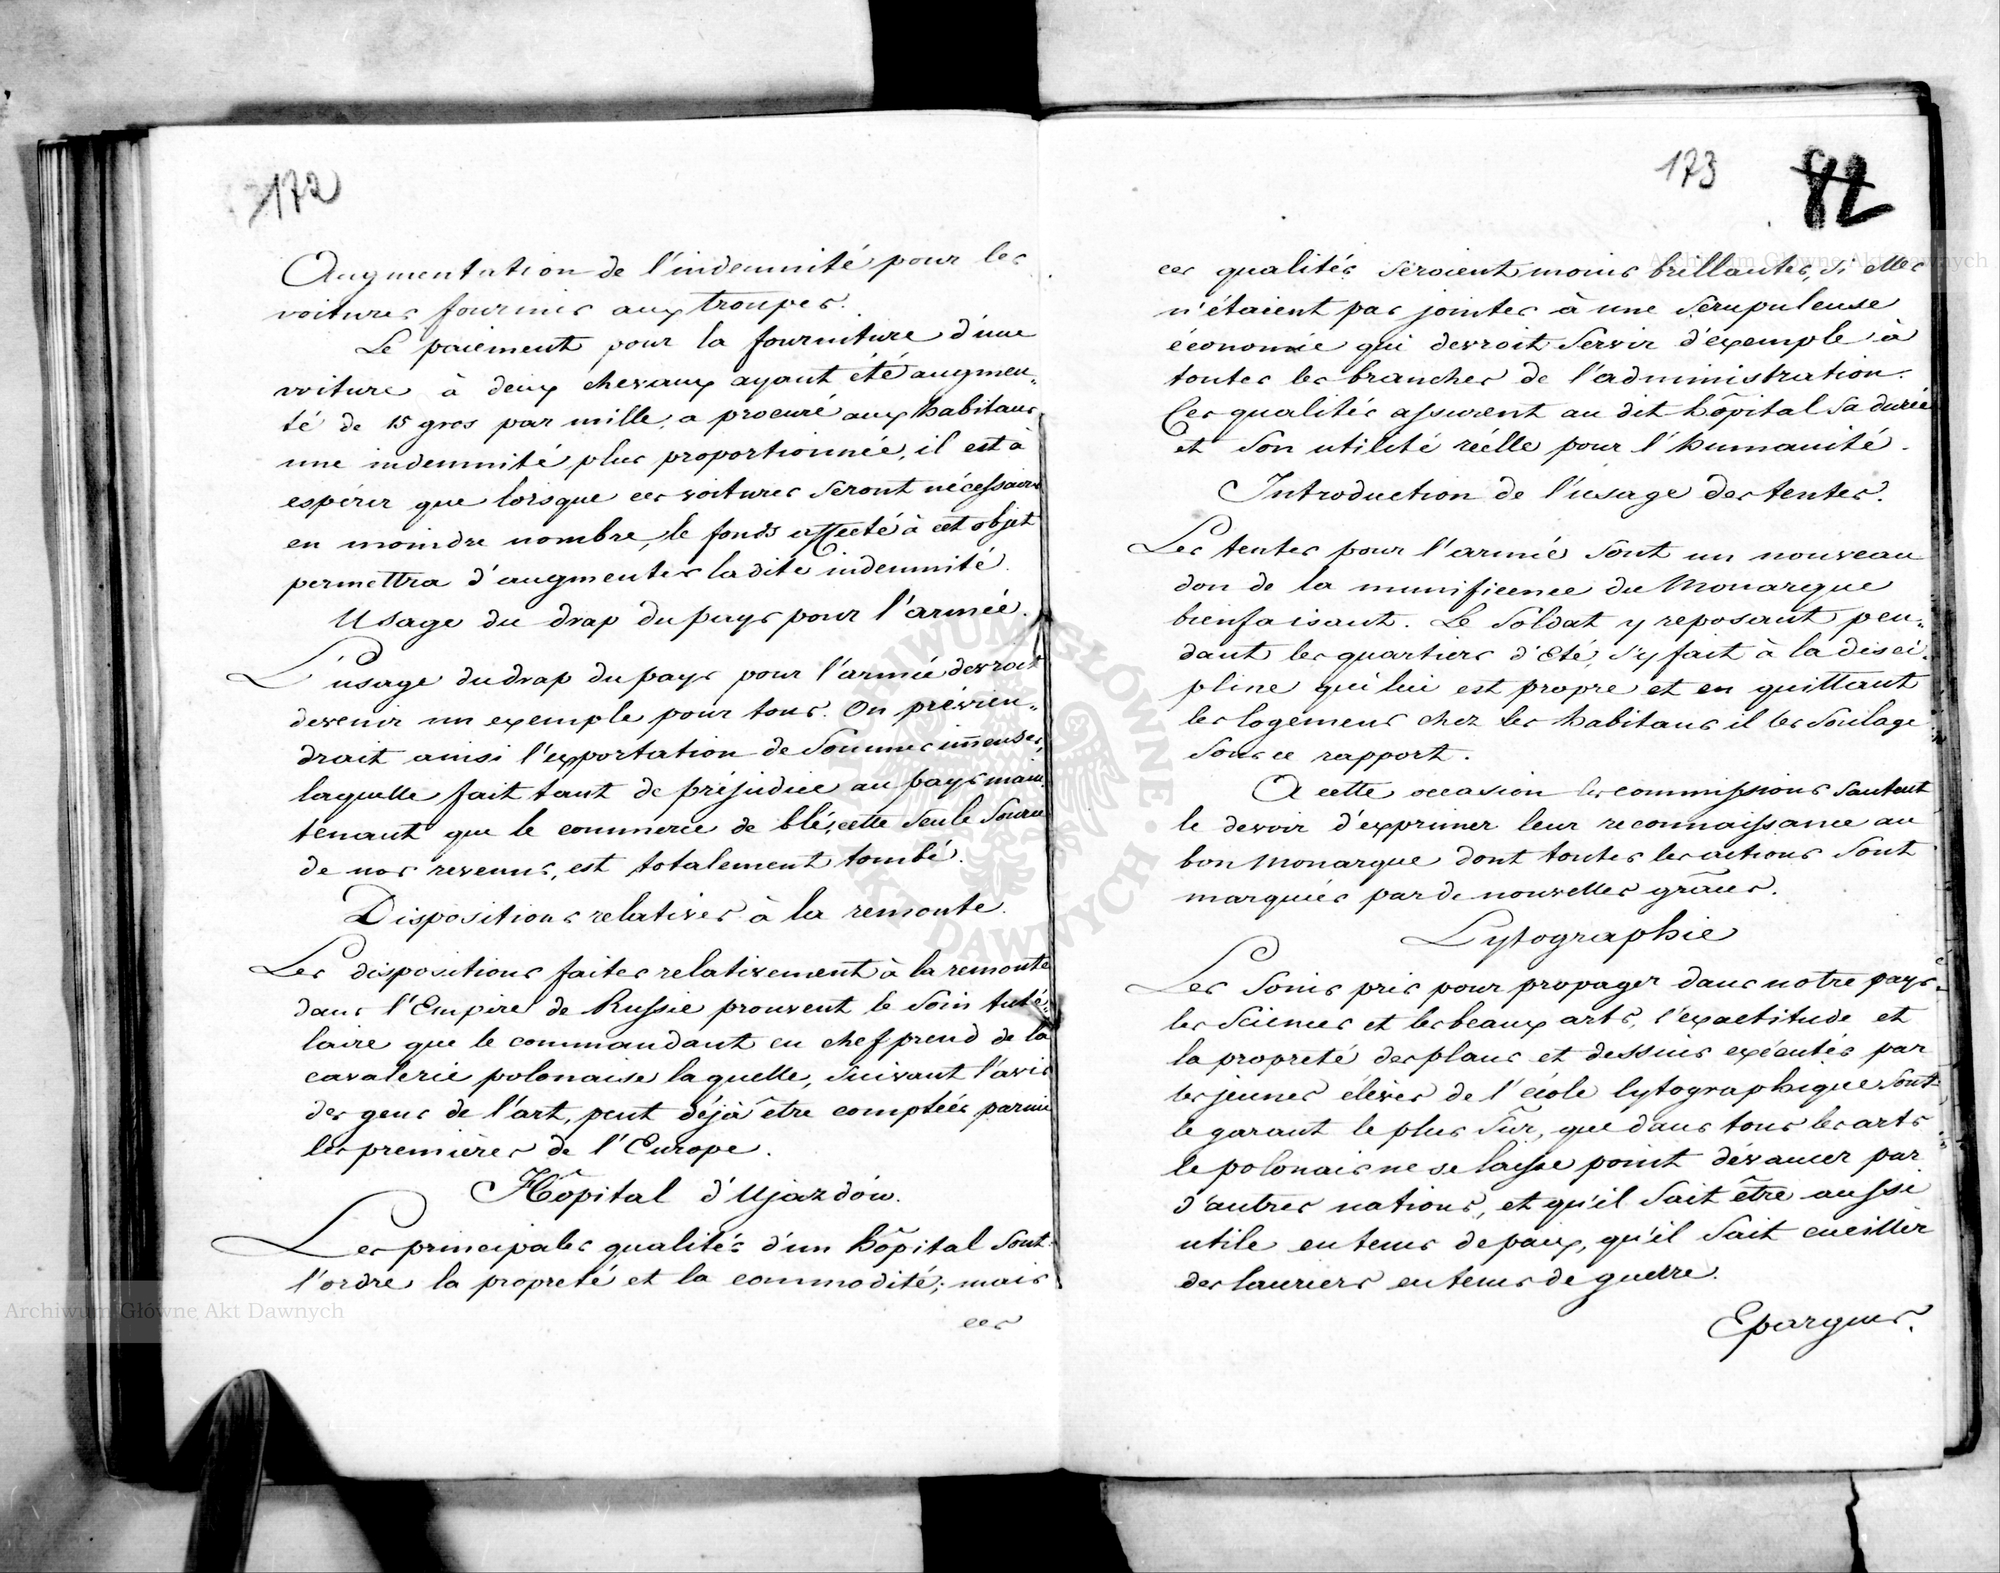 172
Augmentation de l'indemnité pour les
voitures fournies aux troupes.
Le paiement pour la fourniture d'une
voiture à deux chevaux ayant été augmen„
té de 15 gros par mille, a procuré aux habitans
une indemnité plus proportionnée, il est à
espérer que lorsque ces voitures seront nécessaires
en moindre nombre, le fonds affecté à cet objet
permettra d'augmenter la dite indemnité.
Usage du drap du pays pour l'armée.
L'usage du drap du pays pour l'armée devroit
devenir un exemple pour tous. On prévien„
drait ainsi l'exportation de sommes immenses,
laquelle fait tant de préjudice au pays main„
tenant que le commerce de blé, cette seule source
de nos revenus, est totalement tombé.
Dispositions relatives à la remonte.
Les dispositions faites relativement à la remonte
dans l'Empire de Russie prouvent le soin tuté„
laire que le commandant en chef prend de la
cavalerie polonaise laquelle, suivant l'avis
des gens de l'art, peut déjà être comptée parmi
les premières de l'Europe.
Hôpital d'Ujazdów.
Les principales qualités d'un hôpital sont
l'ordre, la propreté et la commodité; mais
ces
173
82
ces qualités seroient moins brillantes, si elles
n'étaient pas jointes à une scrupuleuse
économie qui devroit servir d'exemple à
toutes les branches de l'administration.
Ces qualités assurent au dit hôpital sa durée
et son utilité réelle pour l'humanité.
Introduction de l'usage des tentes.
Les tentes pour l'armée sont un nouveau
don de la munificence du Monarque
bienfaisant. Le soldat y reposant pen„
dant les quartiers d'Eté, s'y fait à la disci„
pline qui lui est propre et en quittant
les logemens chez les habitans il les soulage
sous ce rapport.
A cette occasion les commissions sentent
le devoir d'exprimer leur reconnaissance au
bon Monarque dont toutes les actions sont
marquées par de nouvelles grâces.
Lytographie
Les soins pris pour propager dans notre pays
les sciences et les beaux arts, l'exactitude et
la propreté des plans et dessins exécutés par
les jeunes élèves de l'école lytographique sont
le garant le plus sûr, que dans tous les arts
le polonais ne se laisse point dévancer par
d'autres nations, et qu'il sait être aussi
utile en tems de paix, qu'il sait cueillir
des lauriers en tems de guerre.
Epargnes.
Archiwum Główne Akt Dawnych
Archiwum Główne Akt Dawnych
ARCHIWUM GŁÓWNE • AKT DAWNYCH •